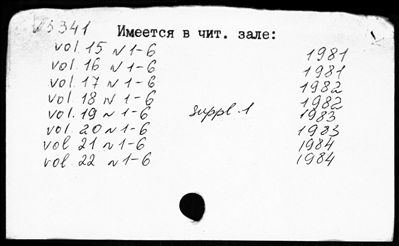 V5341
Имеется в чит. зале:
vol. 15 N 1-6 1981
vol 16 N 1-6 1981
vol. 17 N 1-6 1982
vol. 18 N 1-6 1982
vol. 19 N 1-6 suppl. 1 1983
vol. 20 N 1-6 1983
vol 21 N 1-6 1984
vol. 22 N 1-6 1984